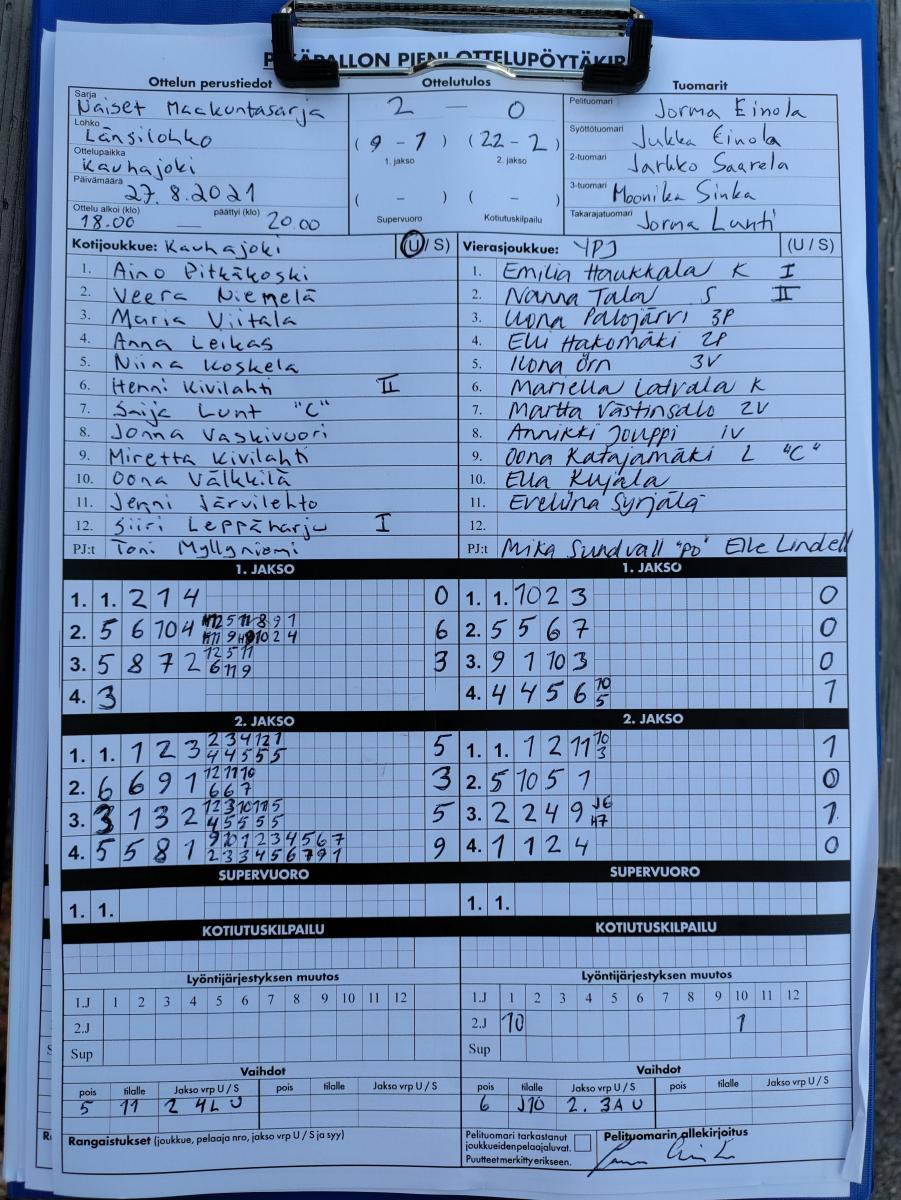 PESÄPALLON PIENI OTTELUPÖYTÄKIRJA
Ottelun perustiedot
Sarja
Naiset Maakuntasarja
Lohko
Länsilohko
Ottelupaikka
Kauhajoki
Päivämäärä
27.8.2021
Ottelu alkoi (klo) päättyi (klo)
18.00 — 20.00
Ottelutulos
2 — 0
(9 - 1) (22 - 2)
1. jakso 2. jakso
( - ) ( - )
Supervuoro Kotiutuskilpailu
Tuomarit
Pelituomari Jorma Einola
Syöttötuomari Jukka Einola
2-tuomari Jarkko Saarela
3-tuomari Moonika Sinka
Takarajatuomari Jorma Lunti
Kotijoukkue: Kauhajoki (U / S)
1. Aino Pitkäkoski
2. Veera Niemelä
3. Maria Viitala
4. Anna Leikas
5. Niina Koskela
6. Henni Kivilahti II
7. Saija Lunt "C"
8. Jonna Vaskivuori
9. Miretta Kivilahti
10. Oona Välkkilä
11. Jenni Järvilehto
12. Siiri Leppäharju I
PJ:t Toni Myllyniemi
Vierasjoukkue: YPJ (U / S)
1. Emilia Haukkala K I
2. Nanna Tala S II
3. Uona Palojärvi 3P
4. Elli Hakomäki 2P
5. Ilona Örn 3V
6. Mariella Latvala K
7. Martta Västinsalo 2V
8. Annikki Jouppi 1V
9. Oona Katajamäki L "C"
10. Ella Kujala
11. Eveliina Syrjälä
12.
PJ:t Mika Sundvall "PD" Elle Lindell
1. JAKSO
1. 1. 2 1 4 0
2. 5 6 10 4 6
3. 5 8 7 2 12 5 11 3
6 11 9
4. 3
1. JAKSO
1. 1. 10 2 3 0
2. 5 5 6 7 0
3. 9 1 10 3 0
4. 4 4 5 6 10 1
5
2. JAKSO
1. 1. 1 2 3 2 3 4 12 1 5
4 4 5 5 5
2. 6 6 9 1 12 11 10 3
6 6 7
3. 3 1 3 2 12 3 10 11 5 5
4 5 5 5 5
4. 5 5 8 1 9 10 1 2 3 4 5 6 7 9
2 3 3 4 5 6 7 9 1
2. JAKSO
1. 1. 1 2 11 10 1
3
2. 5 10 5 1 0
3. 2 2 4 9 J6 1
H7
4. 1 1 2 4 0
SUPERVUORO
1. 1.
SUPERVUORO
1. 1.
KOTIUTUSKILPAILU
KOTIUTUSKILPAILU
Lyöntijärjestyksen muutos
1.J 1 2 3 4 5 6 7 8 9 10 11 12
2.J
Sup
Lyöntijärjestyksen muutos
1.J 1 2 3 4 5 6 7 8 9 10 11 12
2.J 10 1
Sup
Vaihdot
pois tilalle Jakso vrp U / S pois tilalle Jakso vrp U / S
5 11 2 4L U
Vaihdot
pois tilalle Jakso vrp U / S pois tilalle Jakso vrp U / S
6 J10 2. 3A U
Rangaistukset (joukkue, pelaaja nro, jakso vrp U / S ja syy)
Pelituomari tarkastanut
joukkueiden pelaajaluvat.
Puutteet merkitty erikseen.
Pelituomarin allekirjoitus